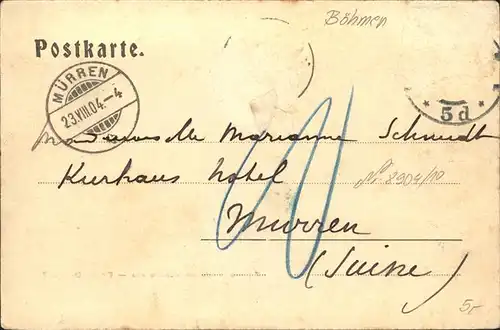 Böhmen
Postkarte.
MÜRREN
23.VIII.04.-4
* 5d *
Mademoiselle Marianne Schmidt
Kurhaus hotel
No 8904/10
Murren
(Suisse)
5.-